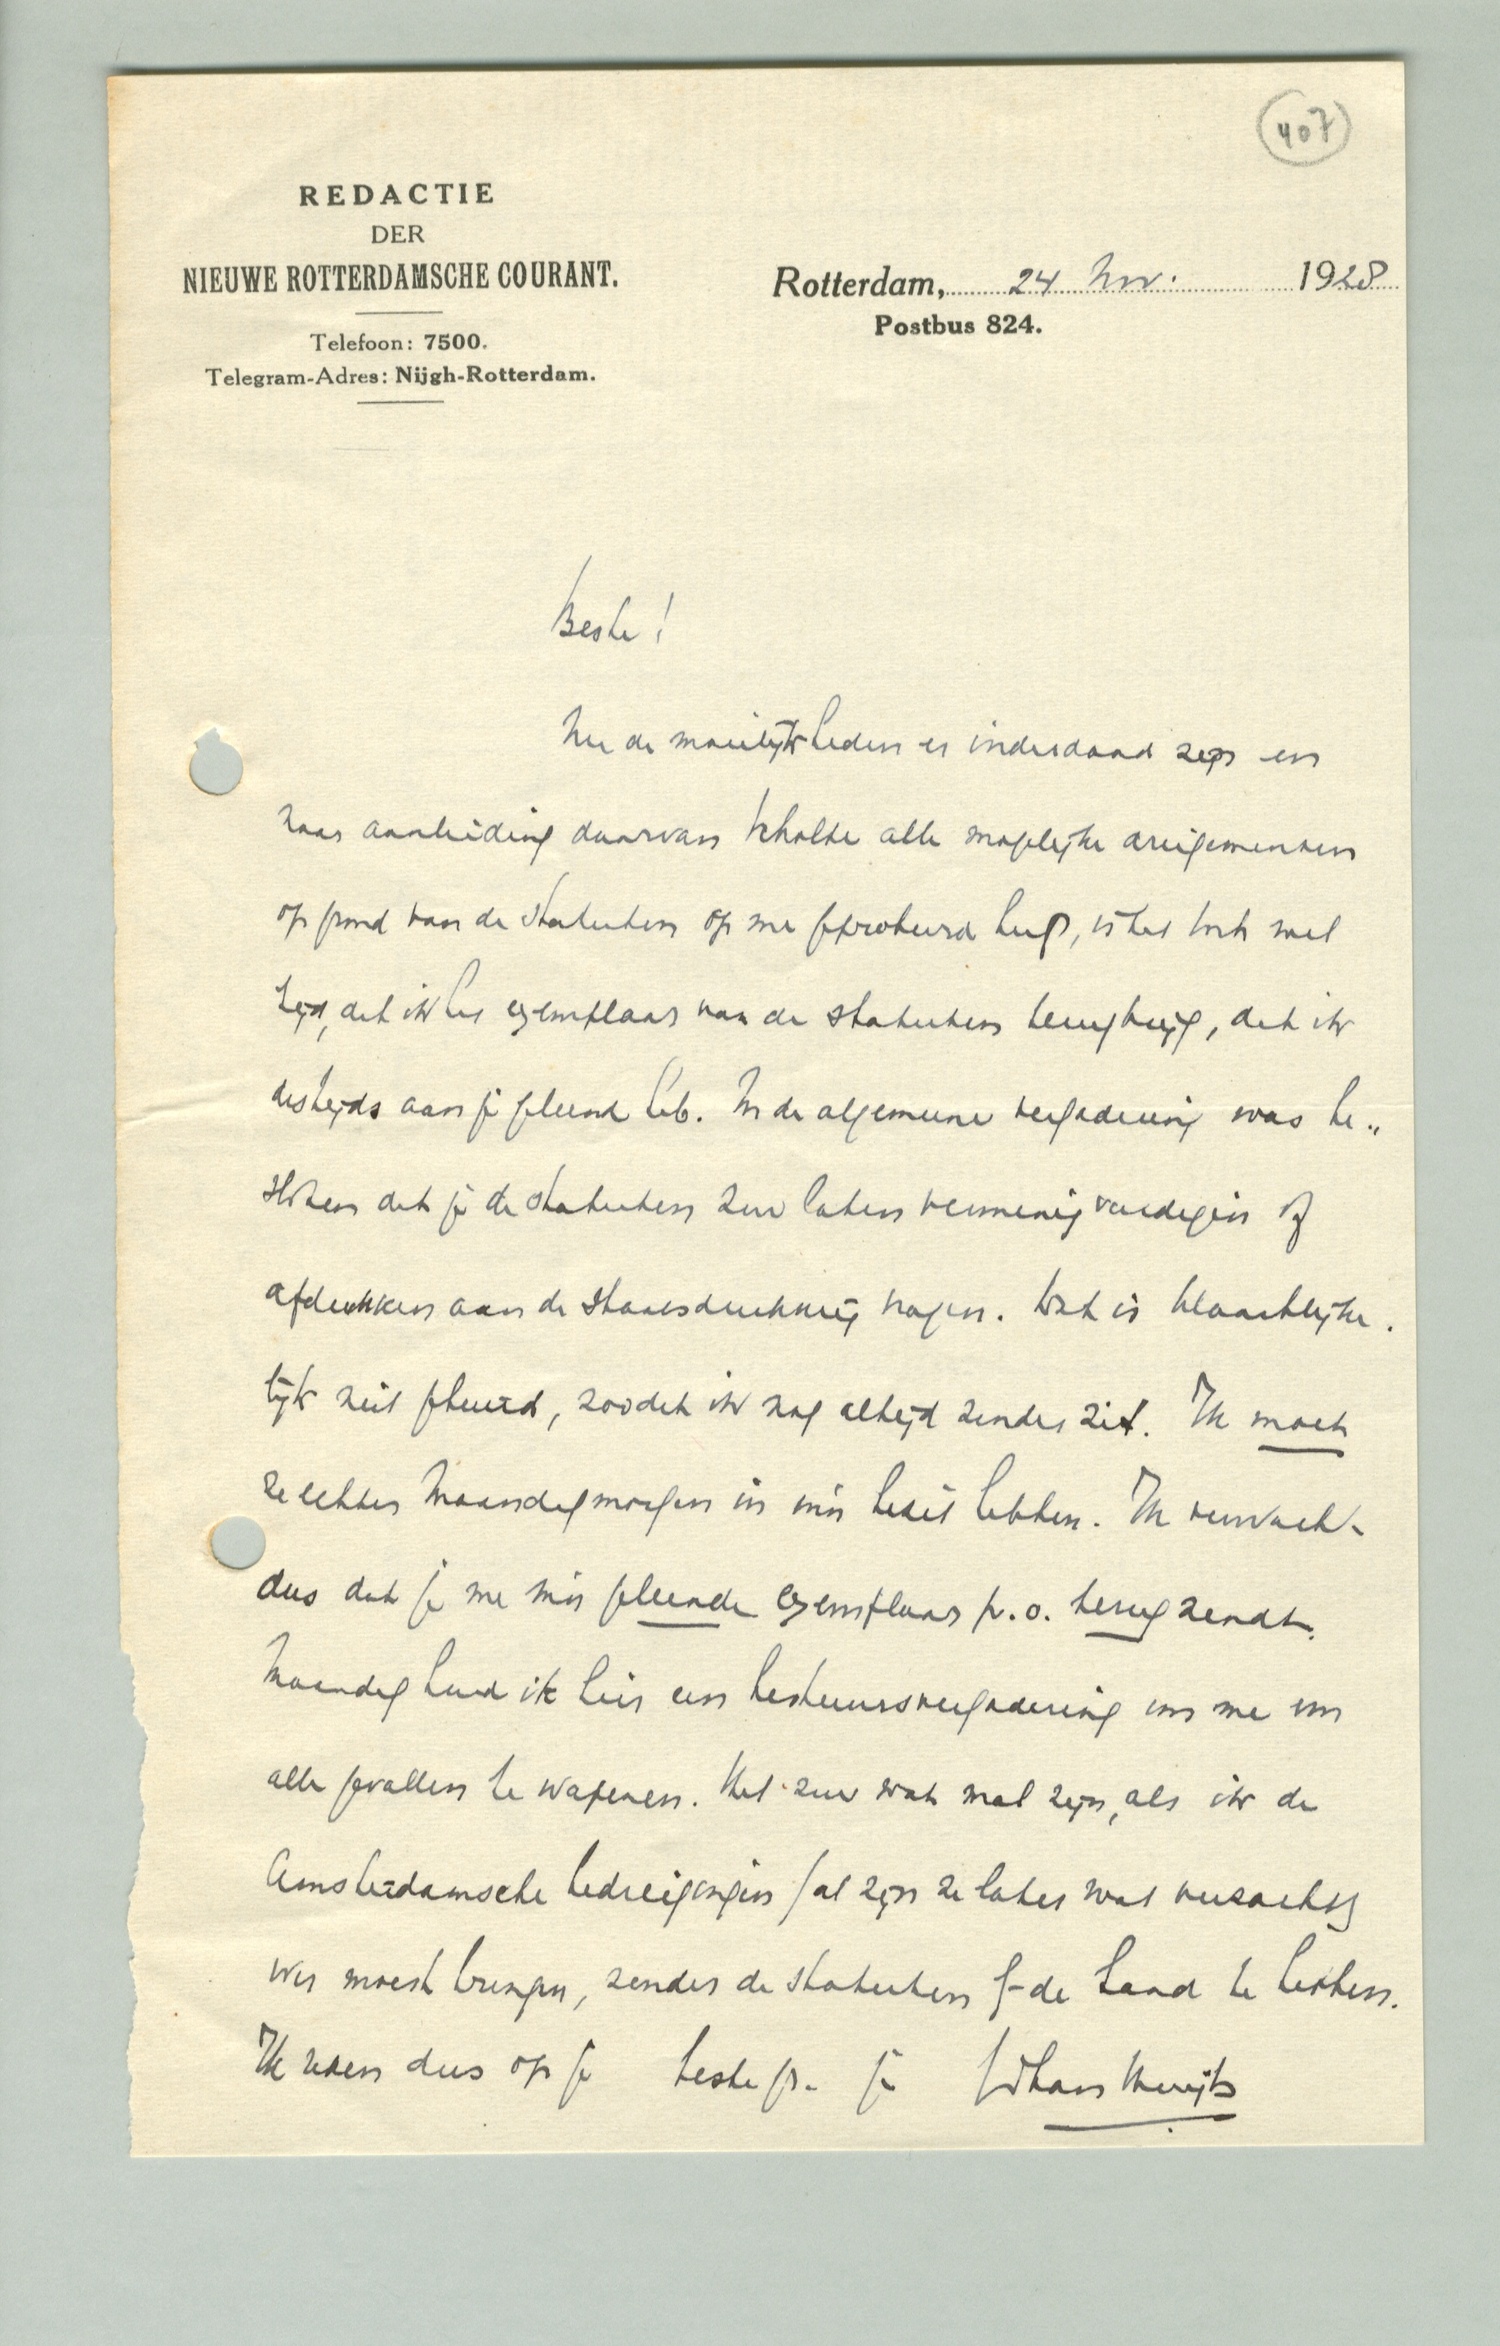 407
REDACTIE
DER
NIEUWE ROTTERDAMSCHE COURANT.
Telefoon: 7500.
Telegram-Adres: Nijgh-Rotterdam.
Rotterdam, 24 Nov. 1928
Postbus 824.
Beste!
Nu de moeilijkheden er inderdaad zijn en
naar aanleiding daarvan alle mogelijke dreigementen
op grond van de statuten op me heeft, is het toch wel
tijd, dat ik het exemplaar van de statuten terugkrijg, dat ik
destijds aan je geleend heb. In de algemeene vergadering was be„
sloten dat je de statuten zou laten vermenigvuldigen of
afdrukken aan de staatsdrukkerij vragen. Dat is klaarblijke.
lijk niet gebeurd, zoodat ik nog altijd zonder zit. Ik moet
ze echter Maandagmorgen in mijn bezit hebben. Ik verwacht
dus dat je me mijn geleende exemplaar p.o. terugzendt.
Maandag houd ik hier een bestuursvergadering om me in
alle gevallen te wapenen. Het zou wat mal zijn, als ik de
Amsterdamsche bedreigingen (al zijn ze later wat verzacht)
moest brengen, zonder de statuten bij de hand te hebben.
Ik reken dus op je beste gr. je Johan Huijts